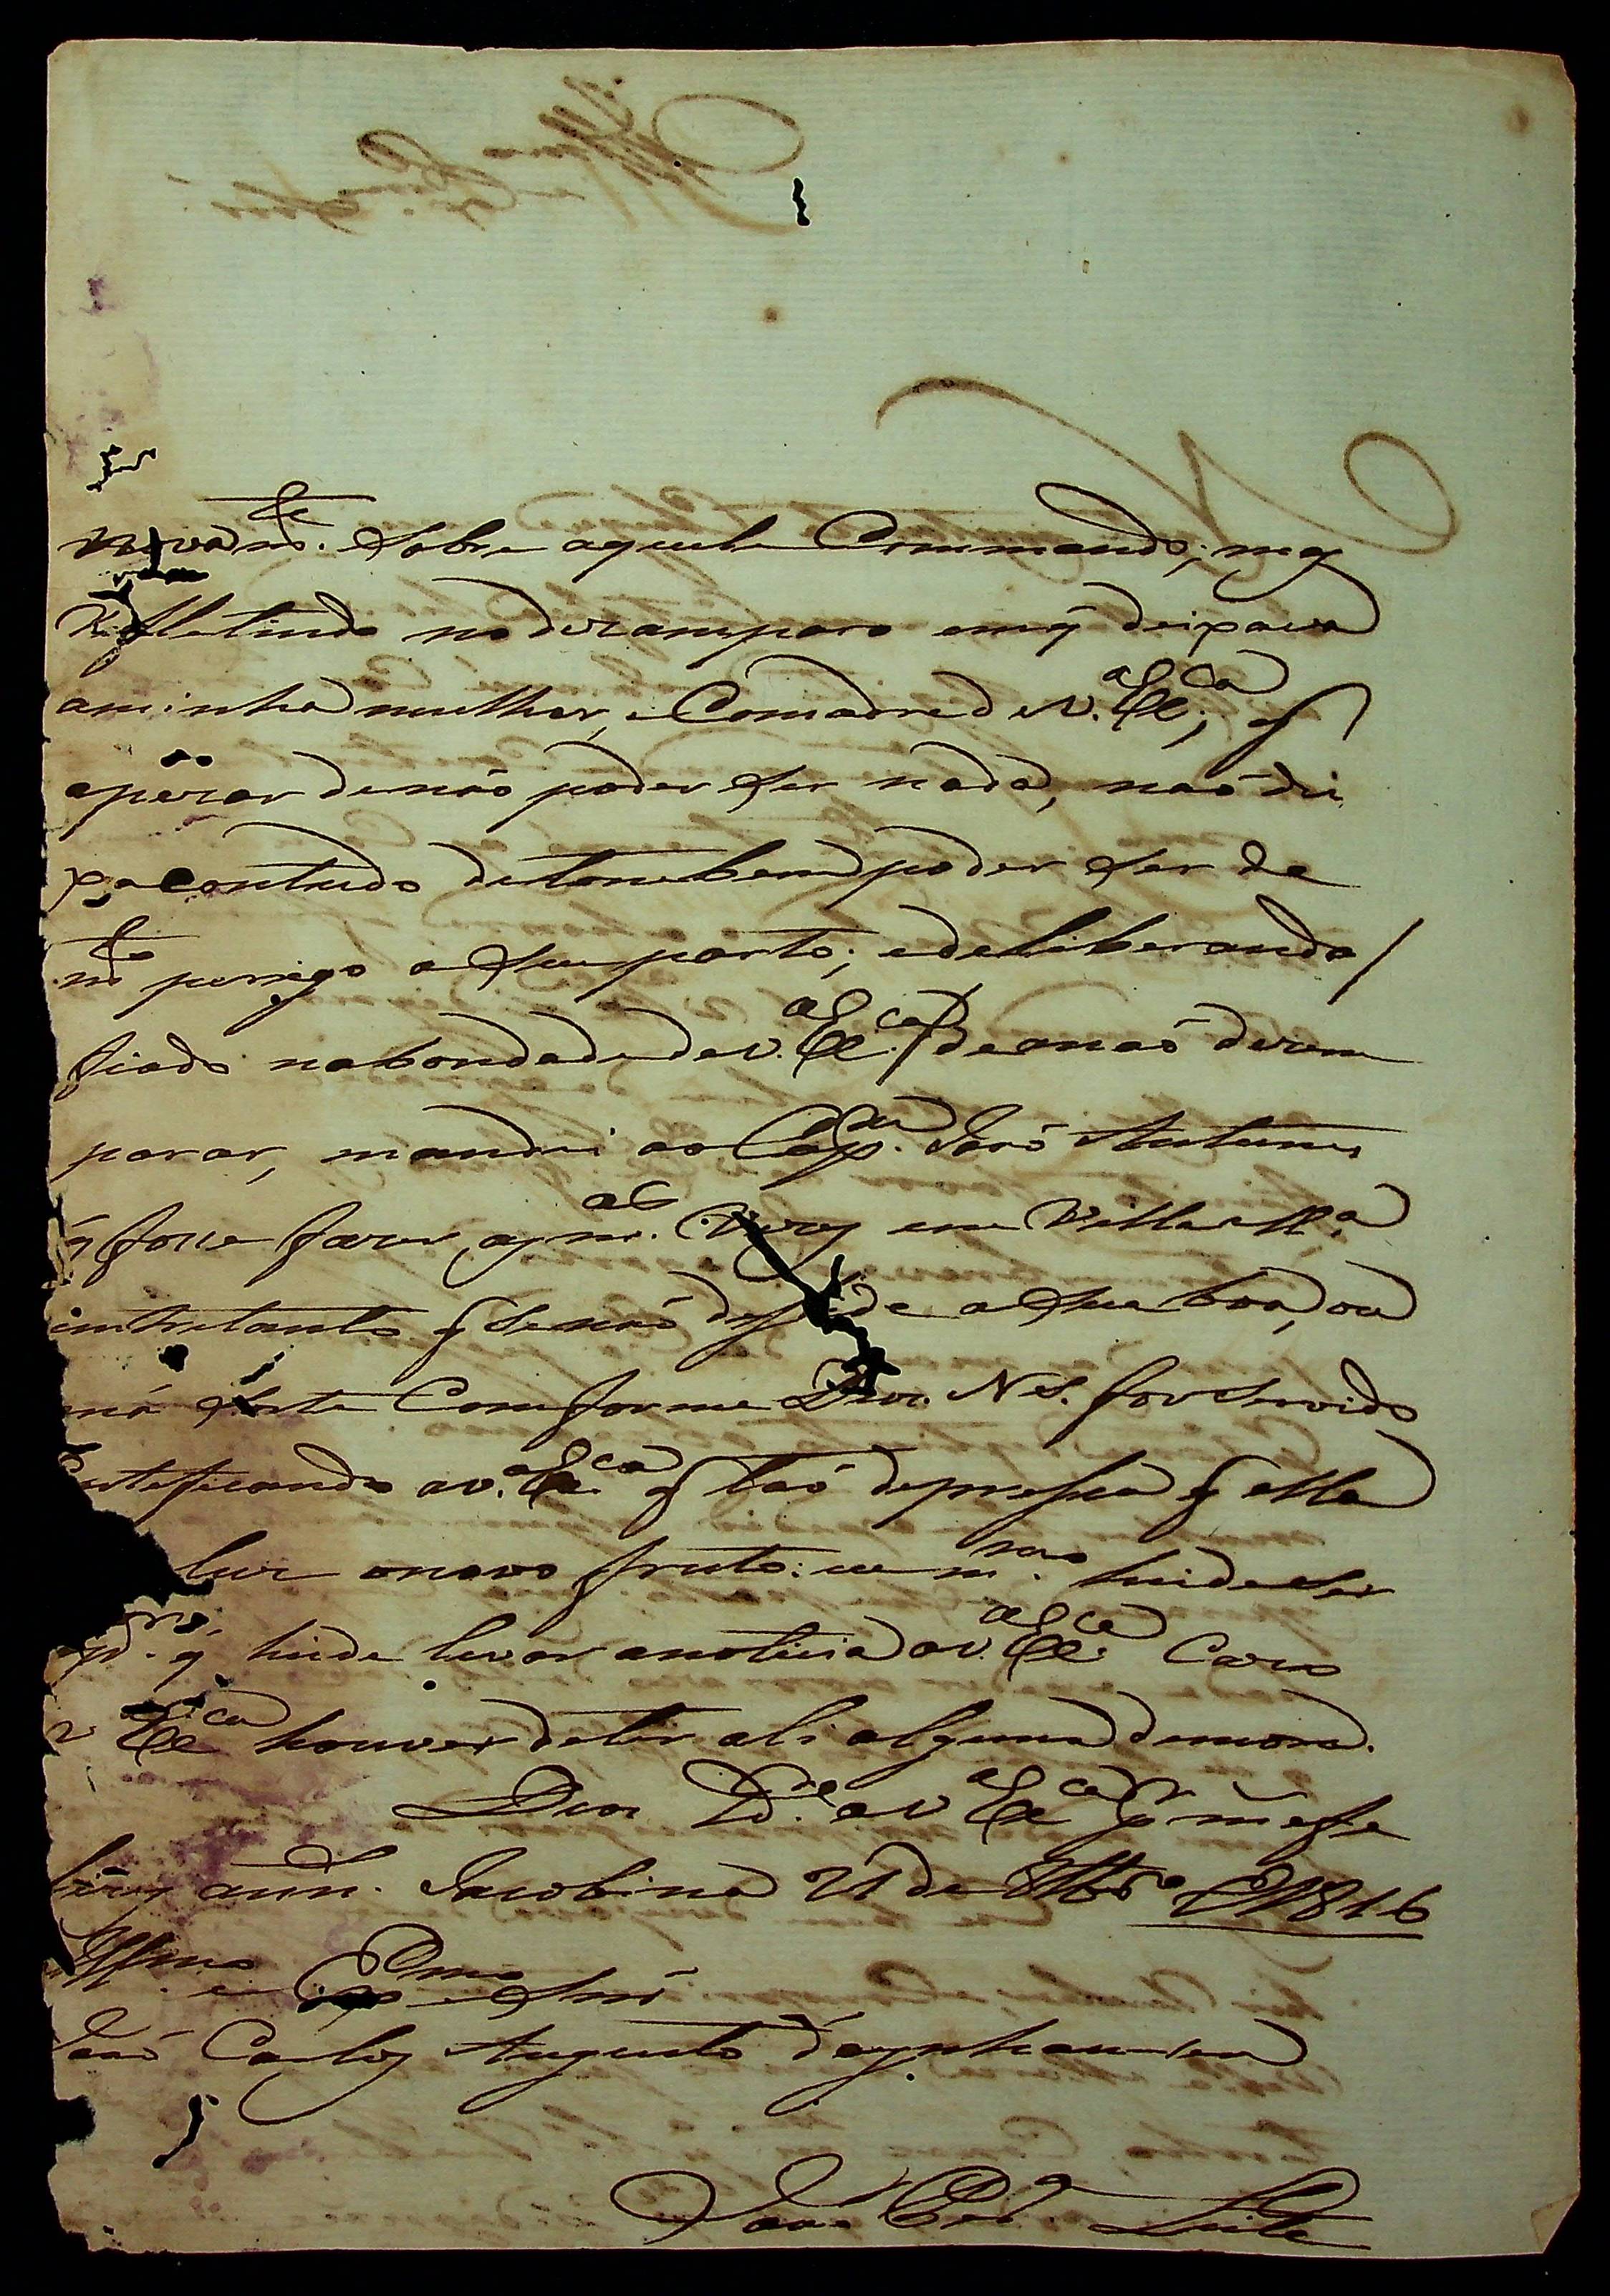 novam.te Sobre aquele Commando; mas
Refletindo no deramparo emq̃ deixava
aminha mulher, e Comadre de V. Ex.ca; q̃
apezar denão poder Ser nada, não dei
xa contudo detambem poder Ser de
m.to perigo o Seu parto; edeliberando/
fiado nabondade de V. Ex.ca/ de anaõ desem
parar, mandei ao Cap.am Joaõ Antunes
q̃ fosse fazer as m.as vezes em Villa M.a
entretanto q̃ Senaõ desside a Sua boa, ou
má Sorte Comforme Deos N S. for Servido
Certeficando a V. Ex.ca q̃ taõ depressa q̃ ella
luz onovo fruto: eu m.mo heide Ser
q̃ heide levar anoticia a V. Ex.ca Cazo
V Ex.ca houver deter ali alguma demora.
Deos G.de a V Ex.ca p.r m. e fe
lizes ann. Jacobina 21 de 8br.o de 1816
Ill.mo e Ex.mo Snr.
Joaõ Carlos Augusto d'Oeynhausen
João Per.a Leite